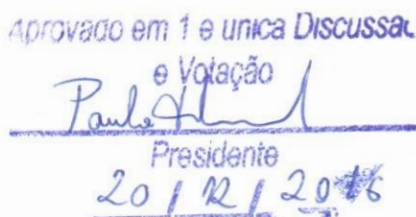 Aprovado em 1 e unica Discussão
e Votação
Presidente
20 / 12 / 2016